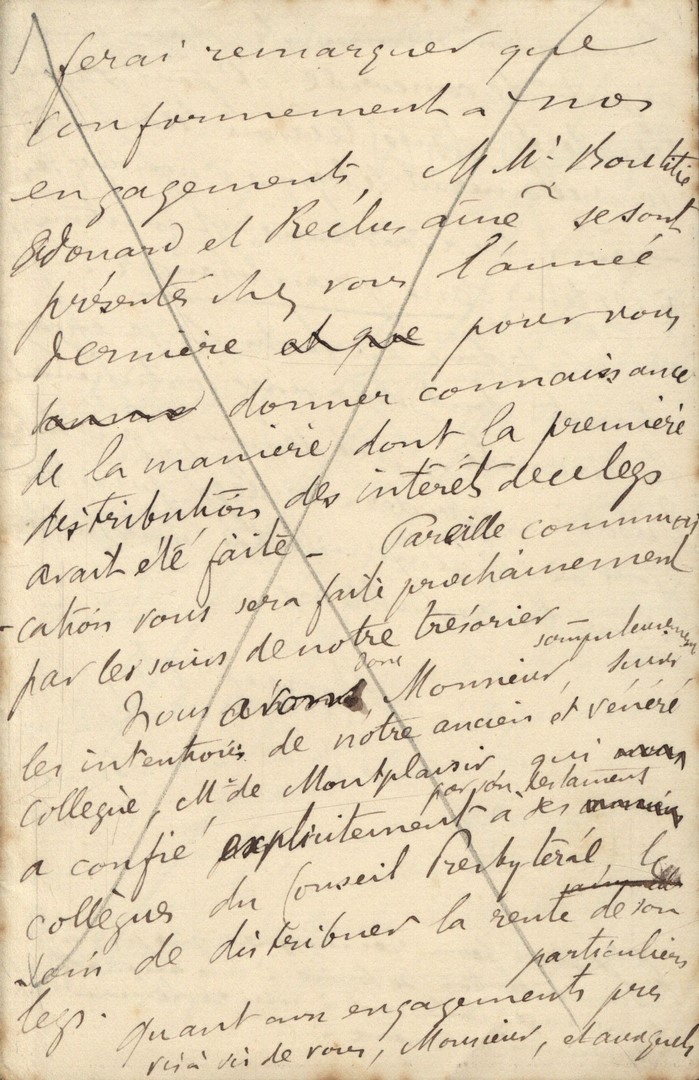 ferai remarquer que
conformement à nos
engagements, M Mrs Boutitie
Edouard et Reclus ainé se sont
présentés chez vous l'année
dernière et que pour vous
donner connaissance
de la manière dont la première
distribution des intérêts de ce legs
avait été faite - Pareille communi
-cation vous sera faite prochainement
par les soins de notre trésorier
scrupuleusement
donc
Nous avons Monsieur, suivi
les intentions de notre ancien et vénéré
collègue, Mr de Montplaisir, qui
par son testament
a confié explicitement à ses
collègues du Conseil Presbytéral, le
soin de distribuer la rente de son
particuliers
legs. Quant aux engagements pris
vis à vis de vous, Monsieur, et auxquels